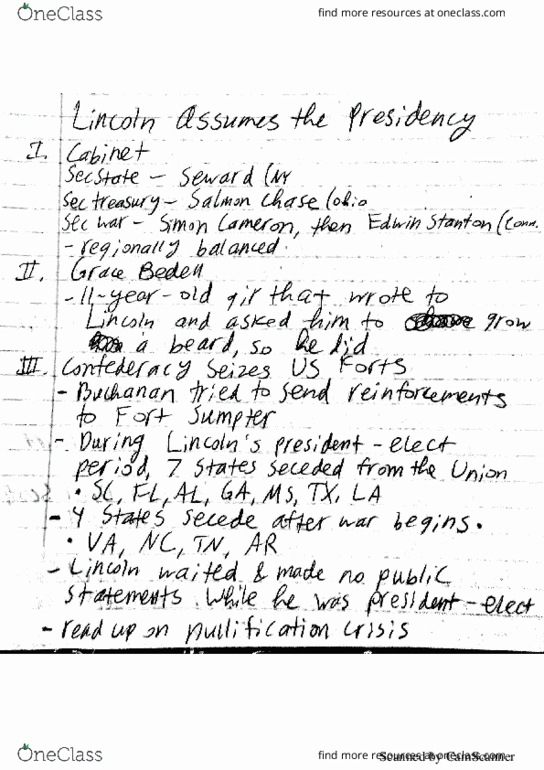 OneClass
find more resources at oneclass.com
Lincoln Assumes the Presidency
I. Cabinet
Sec State - Seward (NY
Sec treasury - Salmon Chase (Ohio
Sec war - Simon Cameron, then Edwin Stanton (Conn.
- regionally balanced.
II. Grace Bedell
- 11-year-old girl that wrote to
Lincoln and asked him to grow
a beard, so he did
III. Confederacy Seizes US Forts
- Buchanan tried to send reinforcements
to Fort Sumpter
- During Lincoln's president-elect
period, 7 States seceded from the Union
• SC, FL, AL, GA, MS, TX, LA
- 4 States secede after war begins.
• VA, NC, TN, AR
- Lincoln waited & made no public
statements while he was president-elect
- read up on nullification crisis
OneClass
find more resources at oneclass.com
Scanned by CamScanner